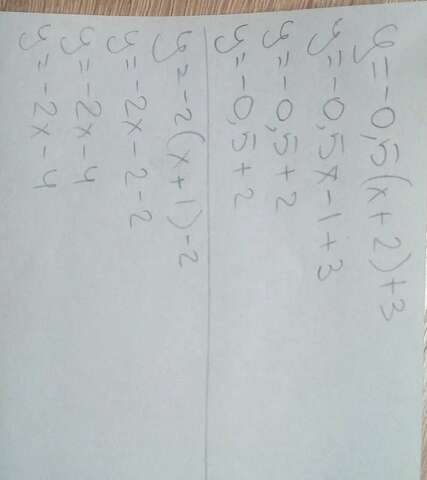 y = -0,5(x+2)+3
y = -0,5x-1+3
y = -0,5+2
y = -0,5+2
y = -2(x+1)-2
y = -2x-2-2
y = -2x-4
y = -2x-4